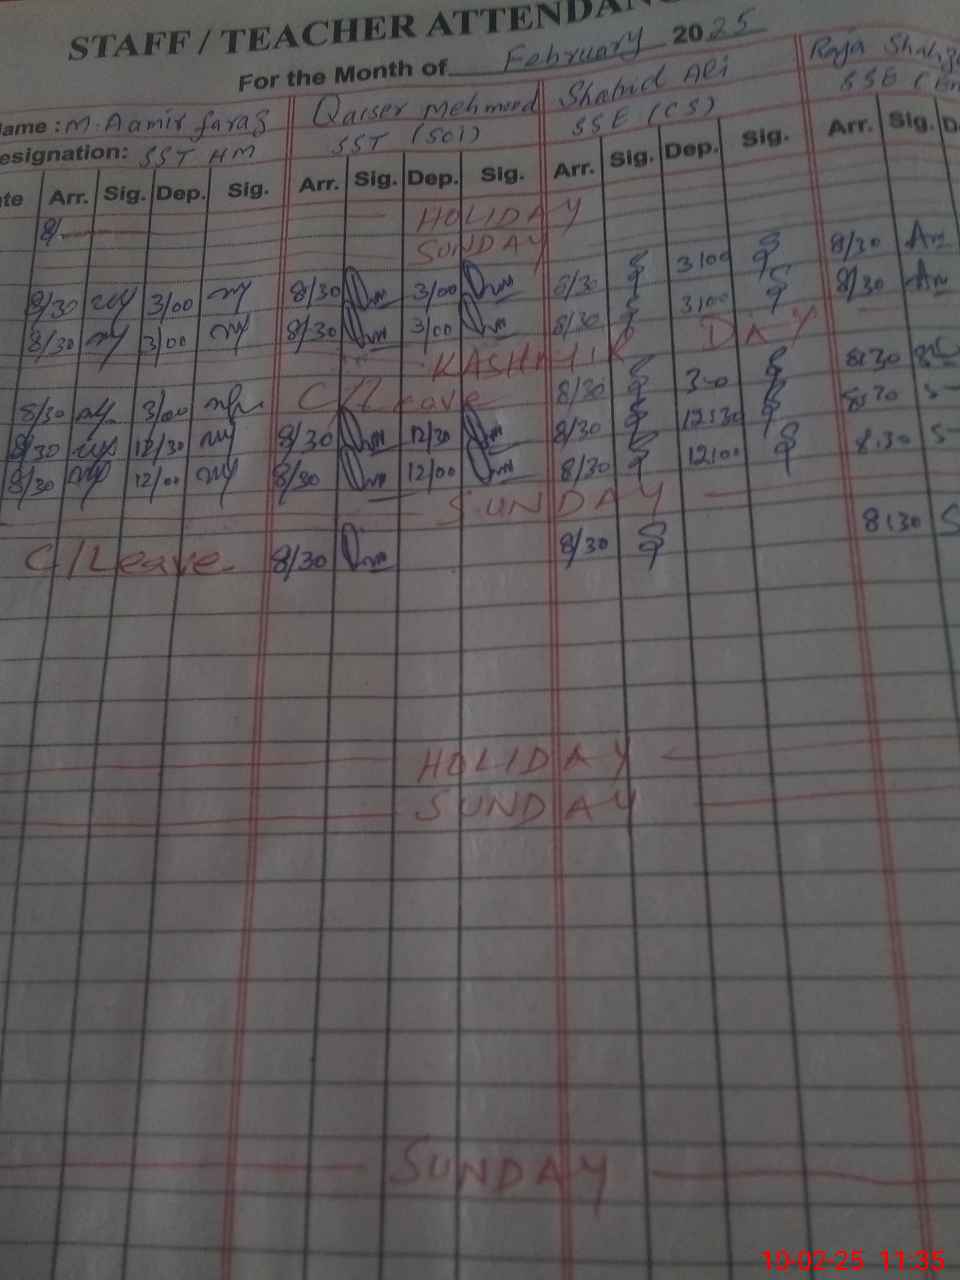 STAFF / TEACHER ATTENDANC
For the Month of February 2025
Name : M. Aamir Qaiser Mehmood Shahid Ali Raja
Designation: SST HM SST (Sci) SSE (CS) SSE (
te Arr. Sig. Dep. Sig. Arr. Sig. Dep. Sig. Arr. Sig. Dep. Sig. Arr. Sig. D
8/ HOLIDAY
SUNDAY
8/30 3/00 8/30 3/00 8/30 3/00 8/30
8/30 3/00 8/30 3/00 8/30 3/00 8/30
KASHMIR DAY
8/30 3/00 C/Leave 8/30 3-0 8:30
8/30 12/30 8/30 12/30 8/30 12:30 8:30
8/30 12/00 8/30 12/00 8/30 12/00 8:30
SUNDAY
C/Leave 8/30 8/30 8:30
HOLIDAY
SUNDAY
SUNDAY
10-02-25 11:35